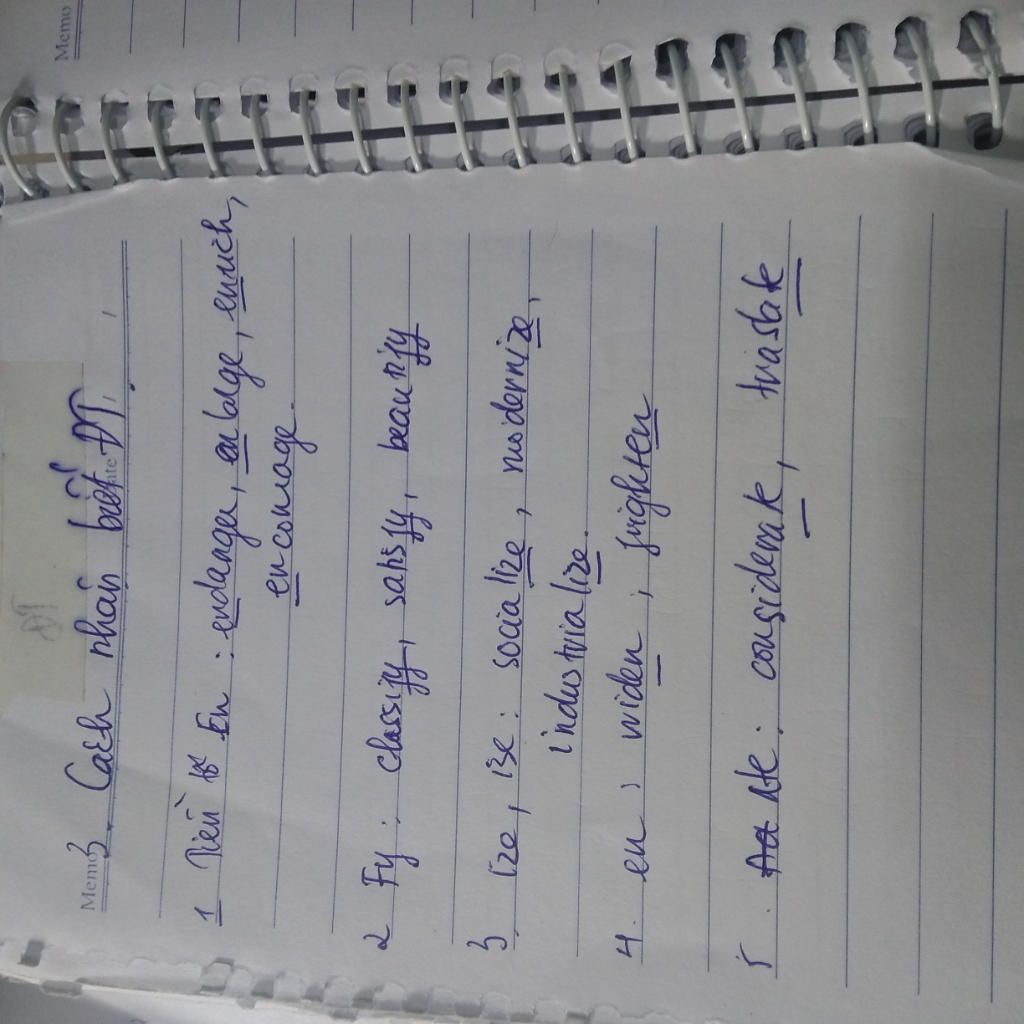 Memo
ĐT
Memo
3. Cách nhận biết ĐT.
1 Tiền En : endanger, enlarge, enrich,
encourage.
2 Fy : classify, satisfy, beautify
3 ize, ise : socialize, modernize,
industrialize.
4. en : widen ; frighten
5. Ate : considerate,